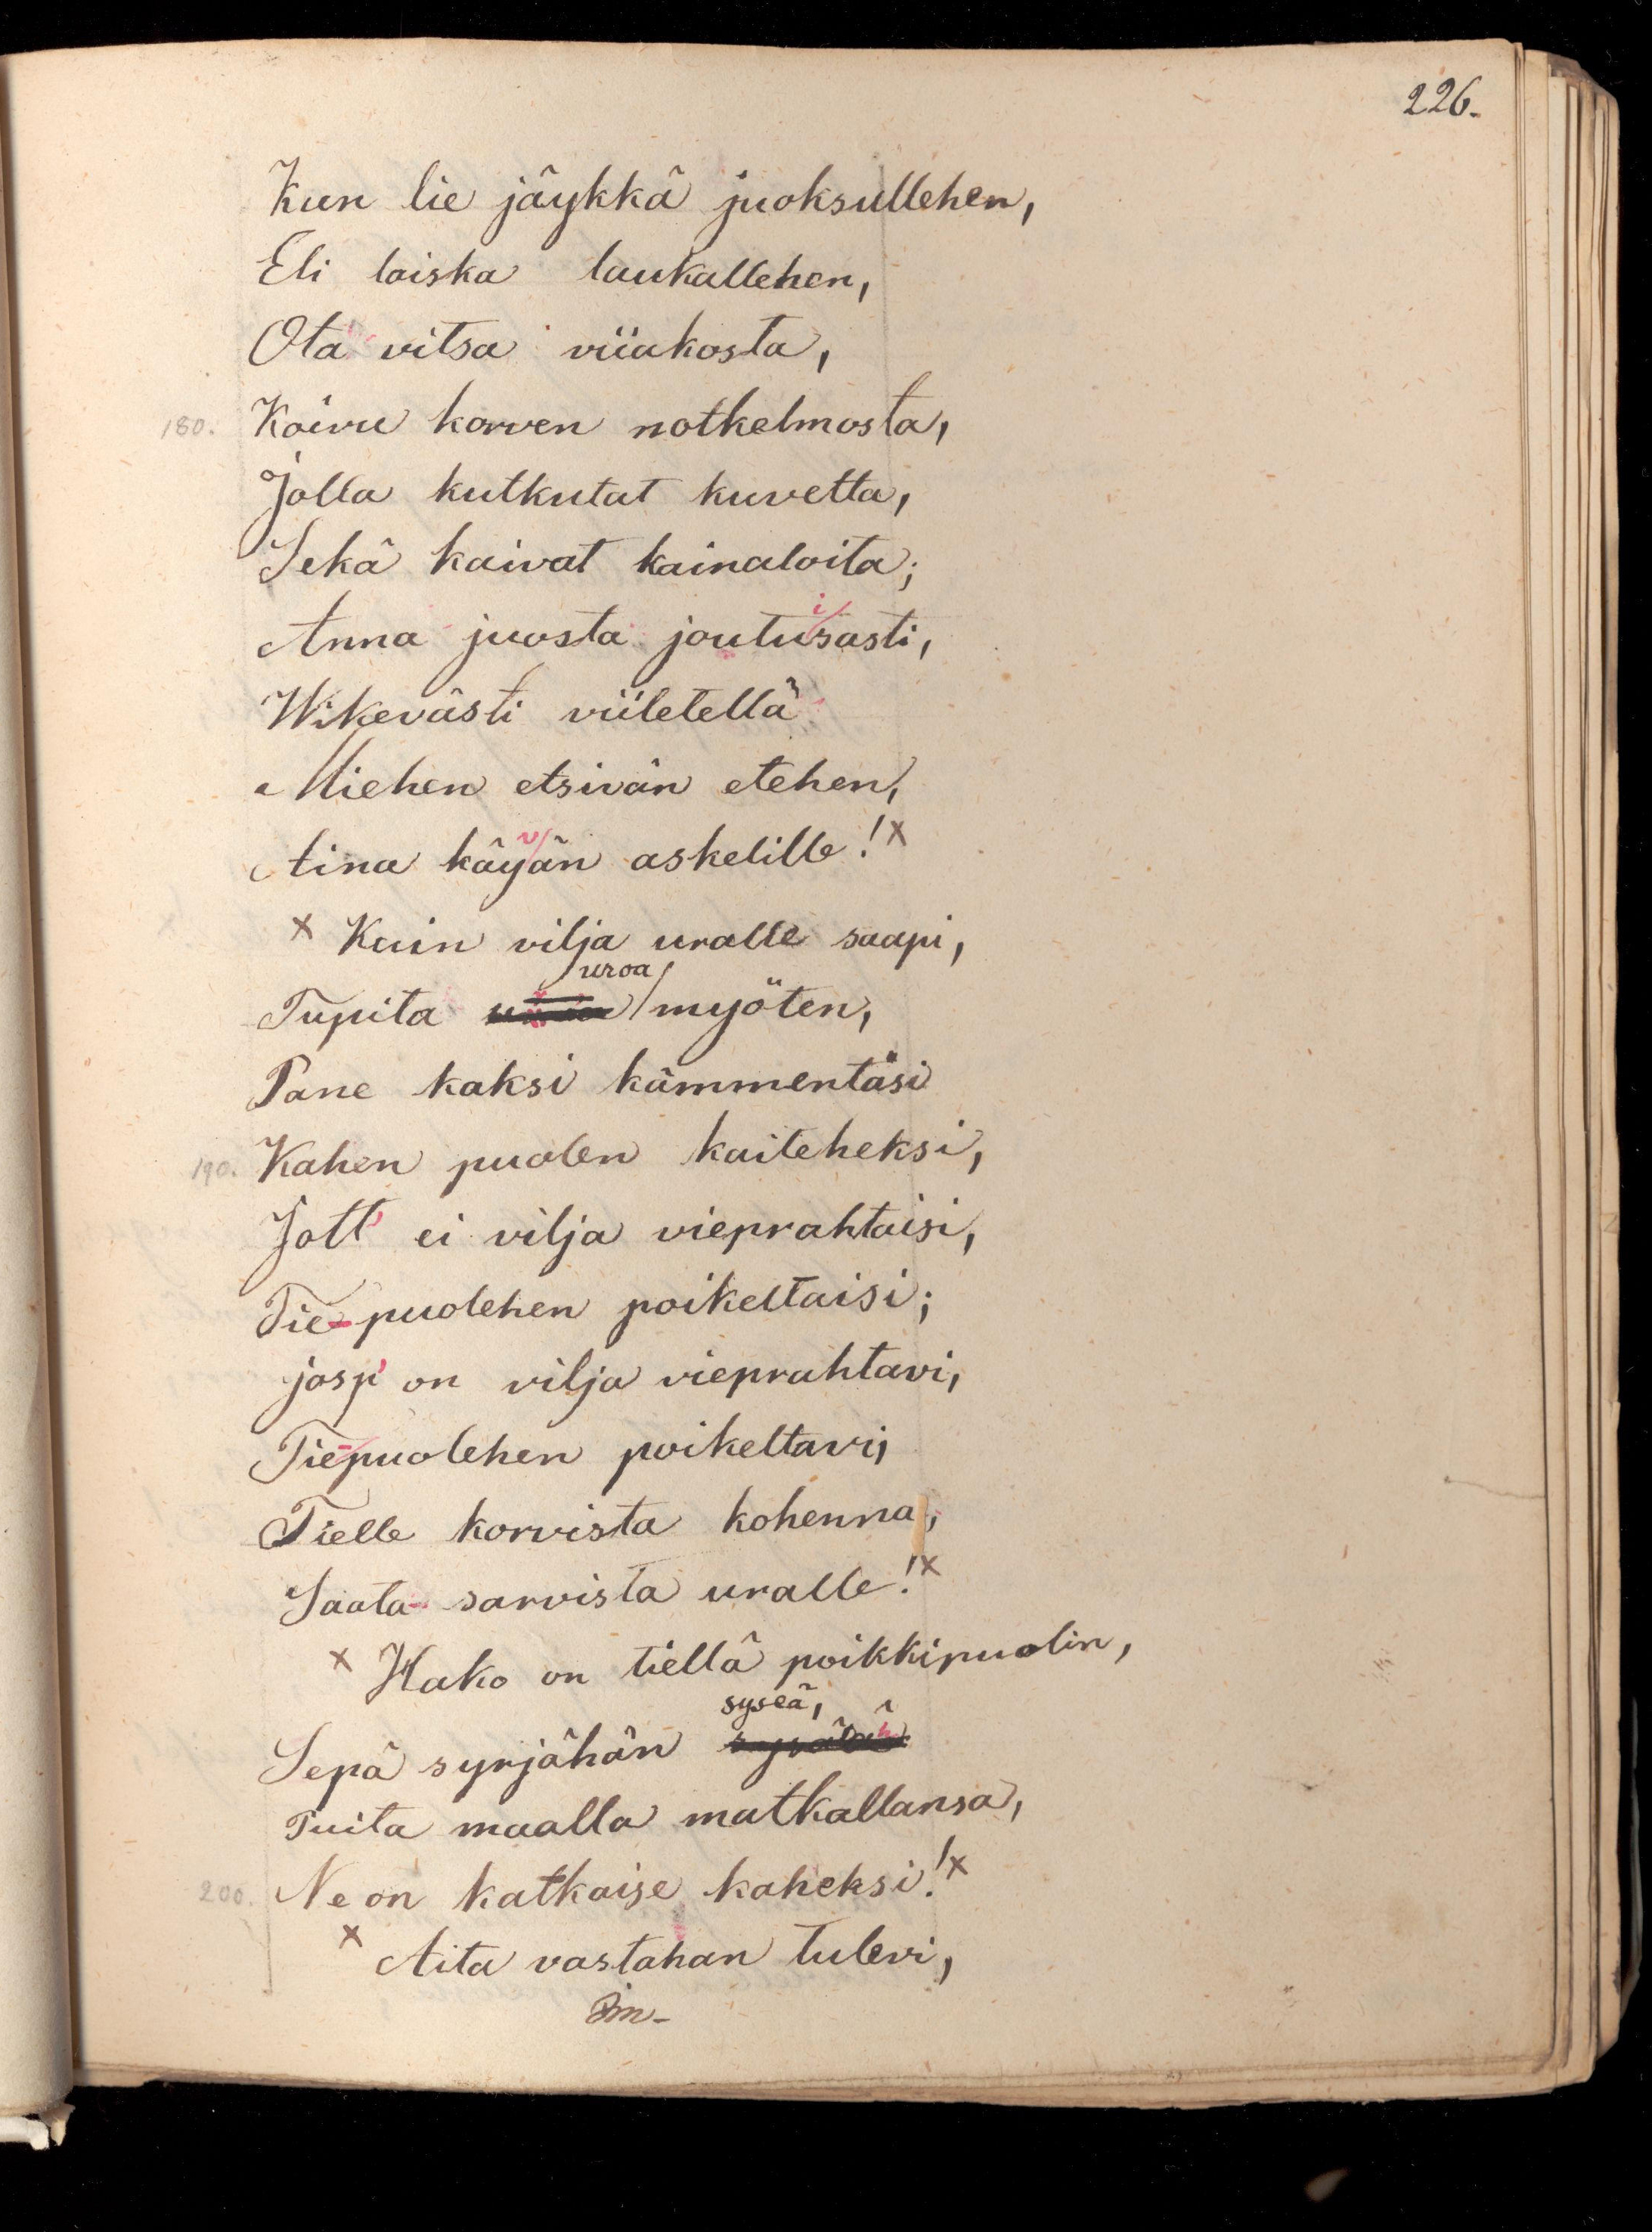 226.
Kun lie jäykkä juoksullehen,
Eli laiska laukallehen,
Ota vitsa viiakosta,
180. Koivu korven notkelmosta,
Jolla kutkutat kuvetta,
Sekä kaivat kainaloita;
i/
Anna juosta joutusasti,
Wikevästi viiletellä
Miehen etsivän etehen,
v/
Aina käyän askelille! x
x Kuin vilja uralle saapi,
uroa
Tupita myöten,
Pane kaksi kämmentäsi
190. Kahen puolen kaiteheksi,
Jott' ei vilja vieprahtaisi,
Tie-puolehen poikeltaisi;
josp' on vilja vieprahtavi,
Tie-puolehen poikeltavi;
Tielle korvista kohenna,
Saata sarvista uralle! x
x Hako on tiellä poikkipuolin,
syseä,
Sepä syrjähän
Puita maalla matkallansa,
200. Ne on katkaise kaheksi! x
x Aita vastahan tulevi,